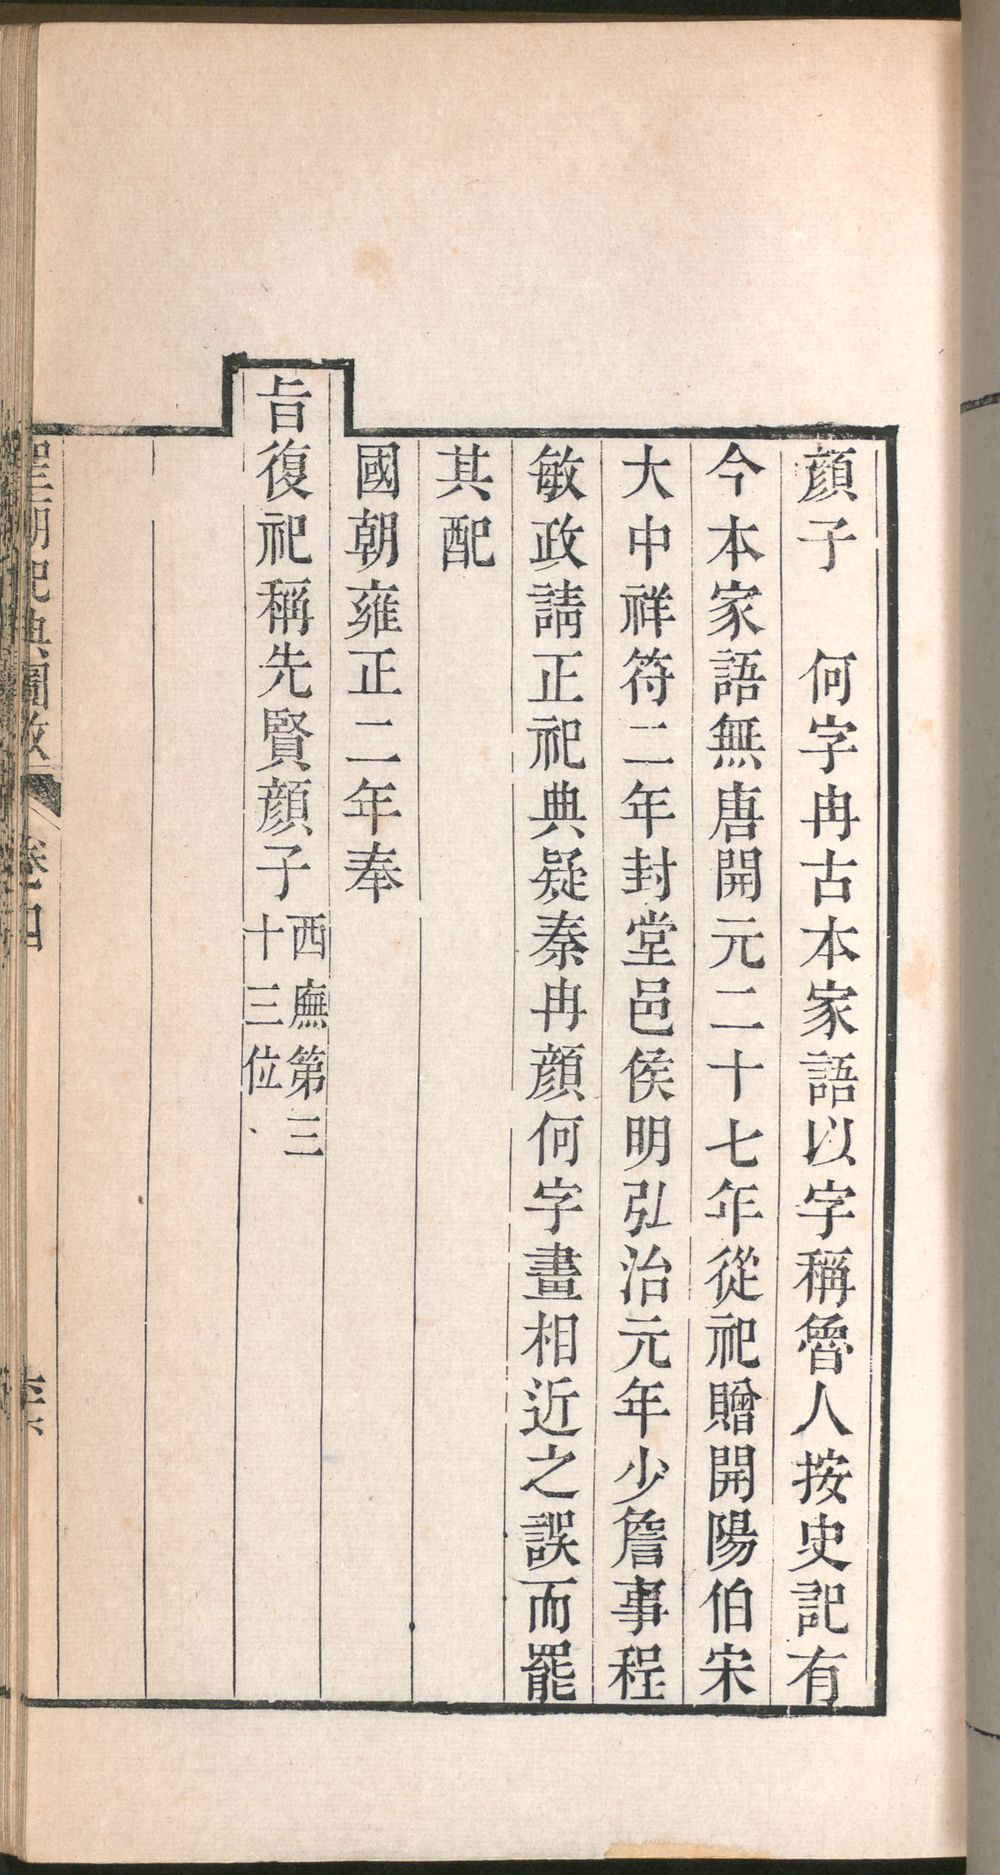 顔子　何字冉古本家語以字稱魯人按史記有
今本家語無唐開元二十七年從祀贈開陽伯宋
大中祥符二年封堂邑侯明弘治元年少詹事程
敏政請正祀典疑秦冉顔何字畫相近之誤而罷
其配
國朝雍正二年奉
旨復祀稱先賢顔子
西廡第三
十三位
聖廟祀典圖攷
卷四